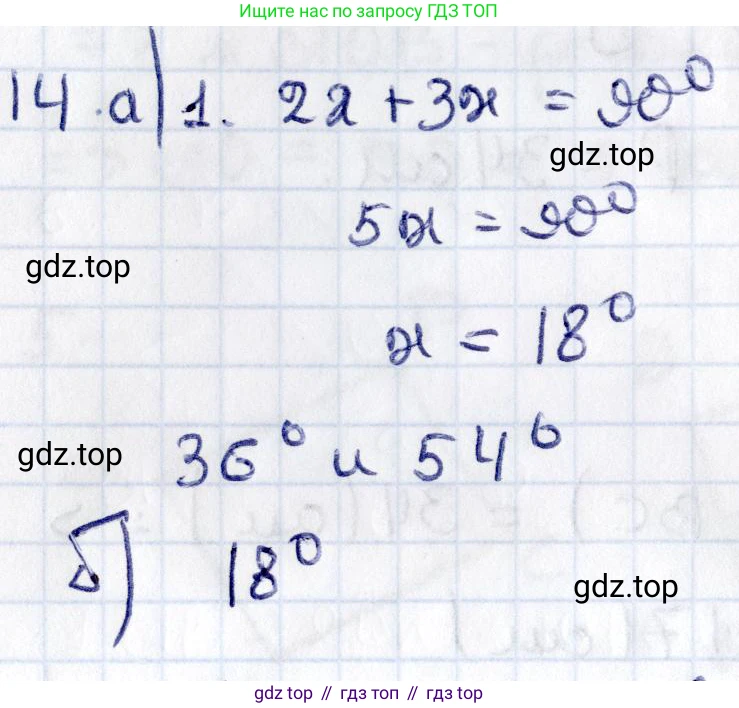 Ищите нас по запросу ГДЗ ТОП
14. а) 1. 2x + 3x = 90°
gdz.top
5x = 90°
gdz.top
x = 18°
gdz.top
36° и 54°
б) 18°
gdz.top
gdz top // гдз топ // gdz top